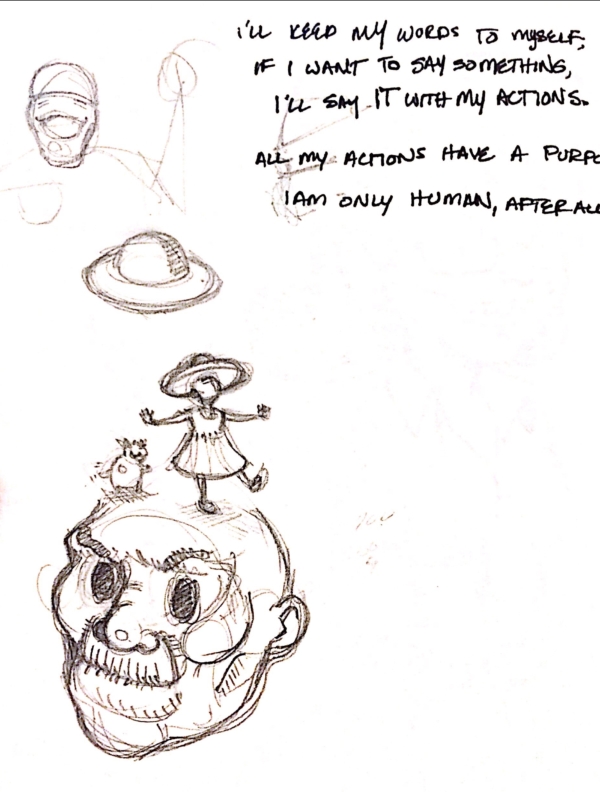 I'LL KEEP MY WORDS TO MYSELF,
IF I WANT TO SAY SOMETHING,
I'LL SAY IT WITH MY ACTIONS.
ALL MY ACTIONS HAVE A PURPO
I AM ONLY HUMAN, AFTER ALL